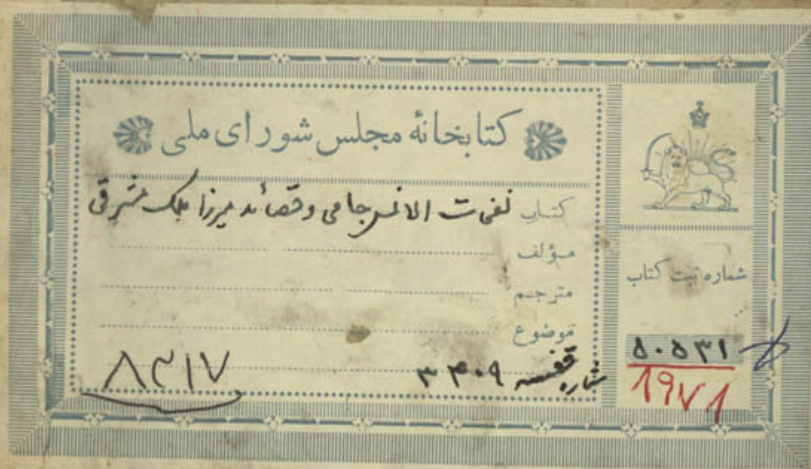 کتابخانهٔ مجلس شورای ملی
کتاب نفحات الانس جامی و قصائد میرزا ملک مشرقی
مؤلف
مترجم
موضوع
شماره قفسه ۳۴۰۹
۸۳۱۷
شماره ثبت کتاب
۵۰۵۳۱
۱۹۷۱